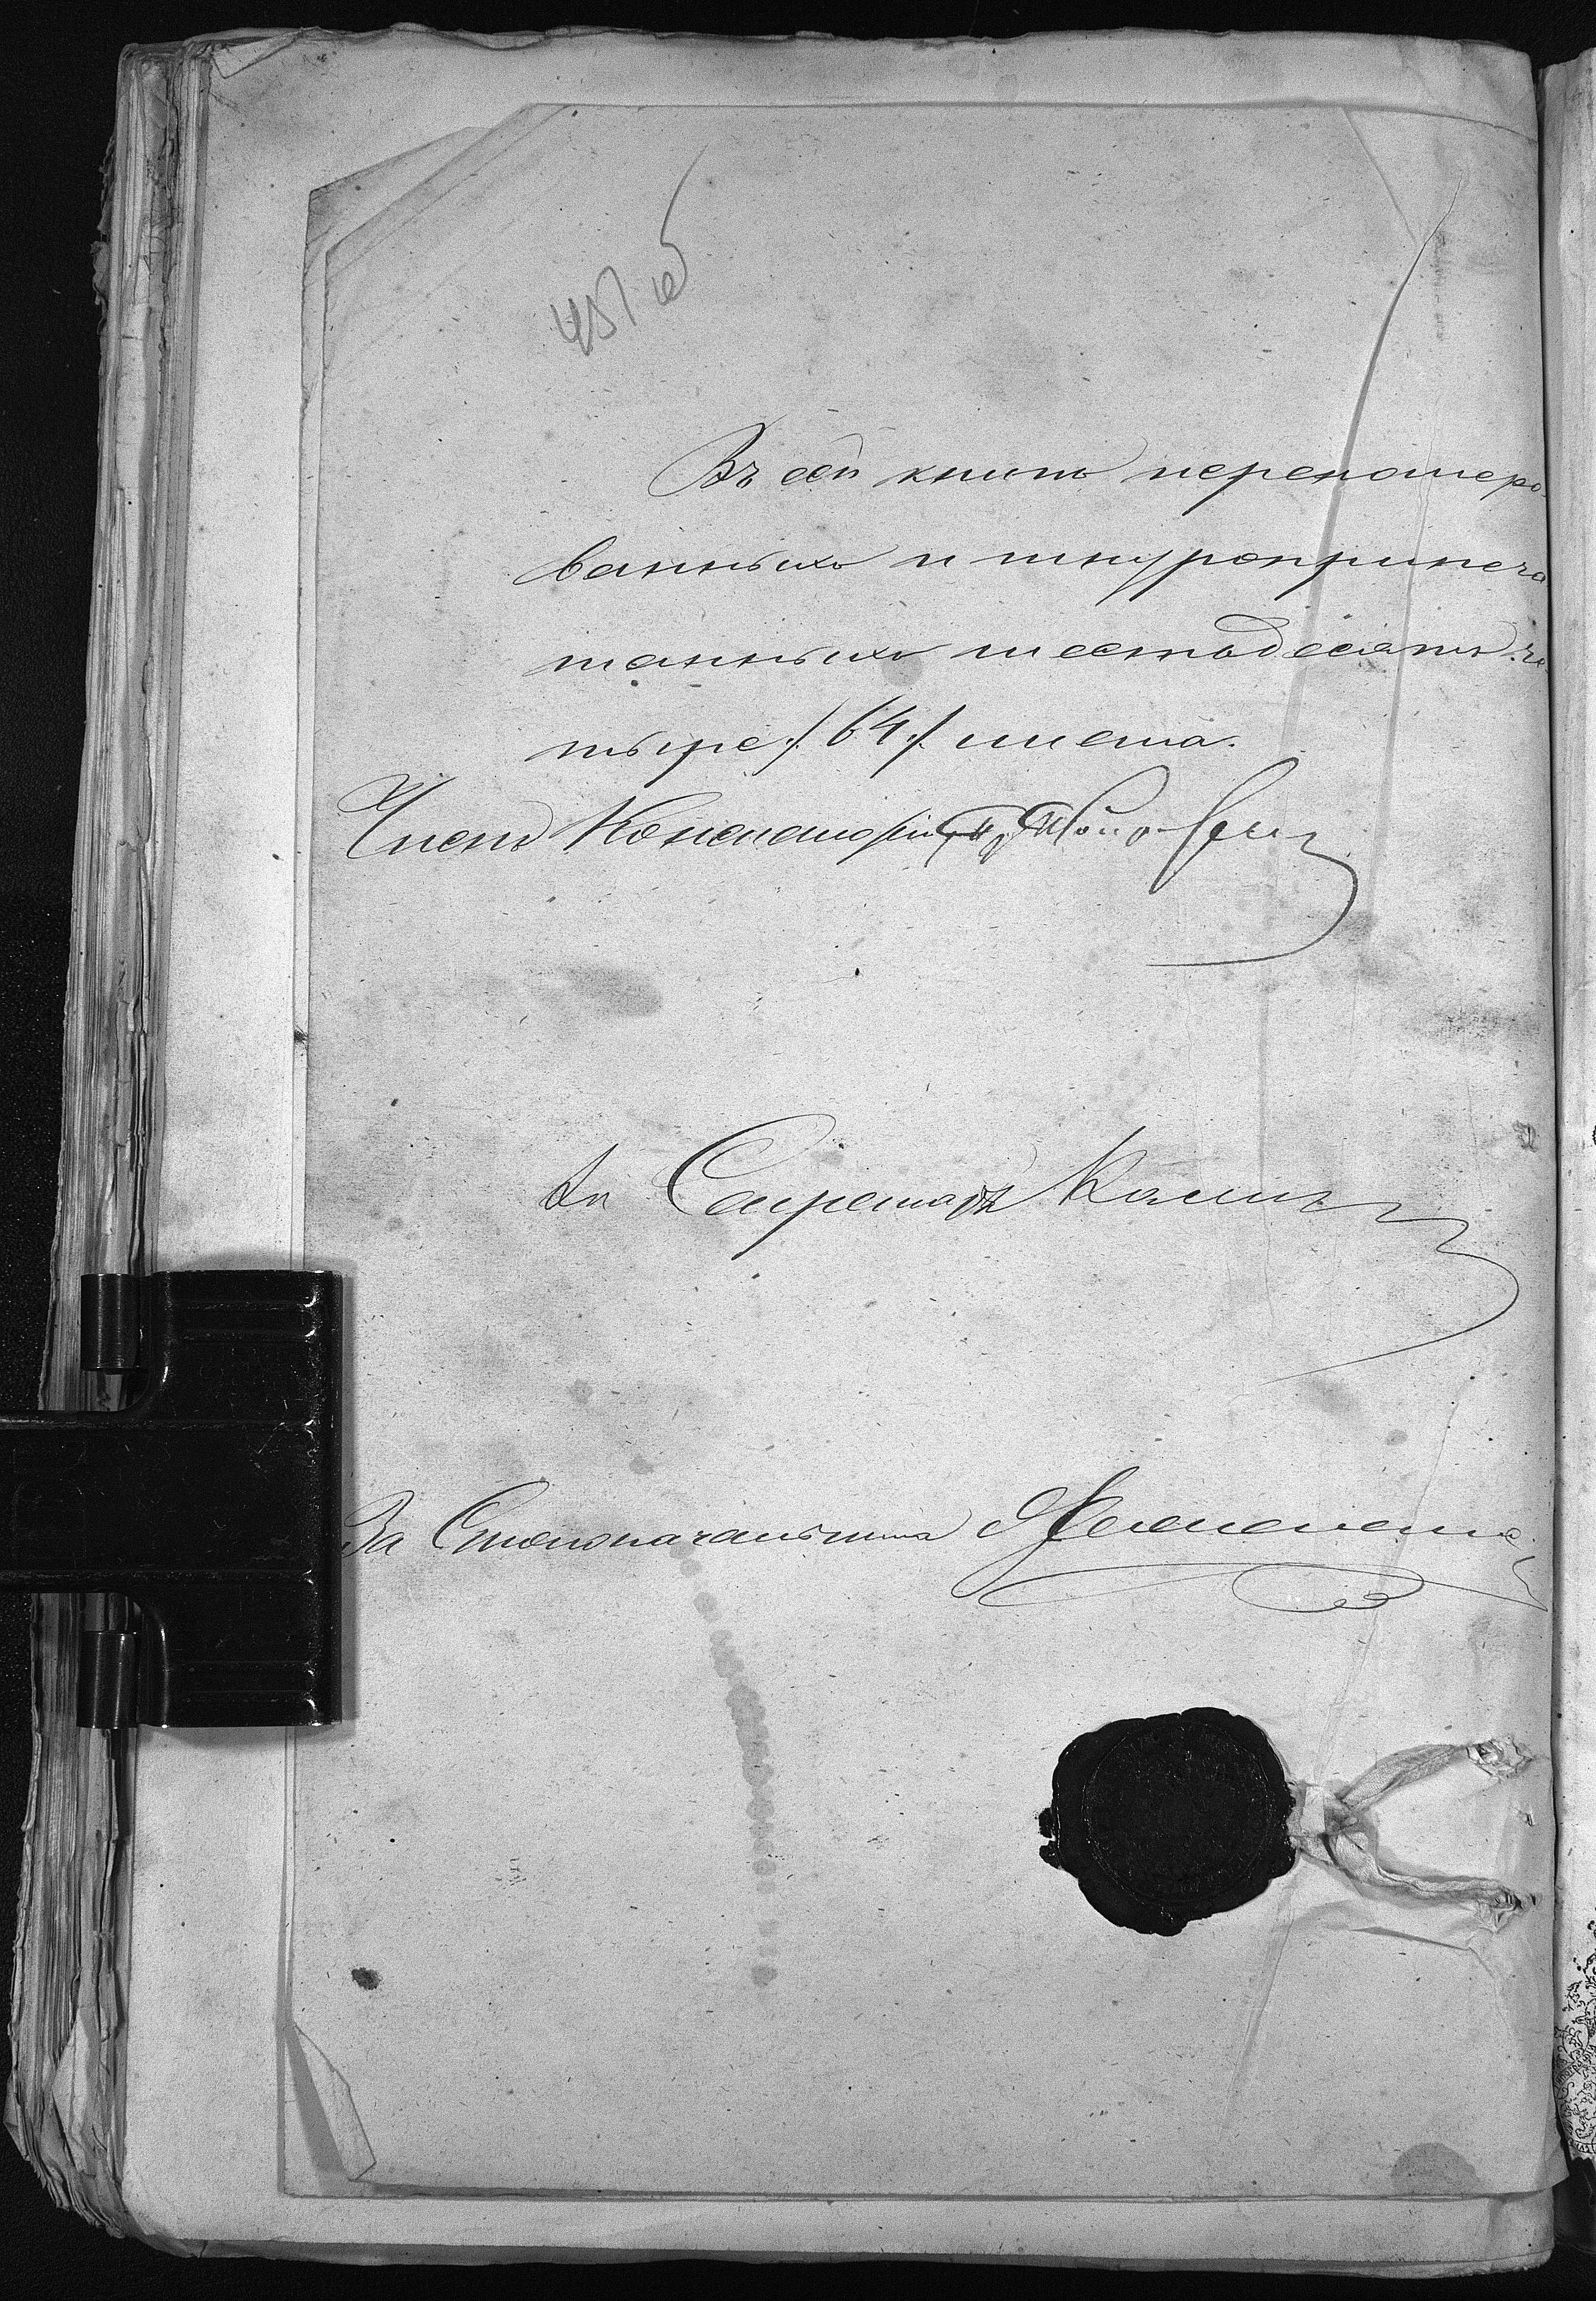 451 об
Въ сей книгѣ перономеро-
ванныхъ и шнуроприпеча
танныхъ шестьдесятъ че-
тыре /64/ листа.
Членъ Консисторіи
За Секретаря
За Столоначальника